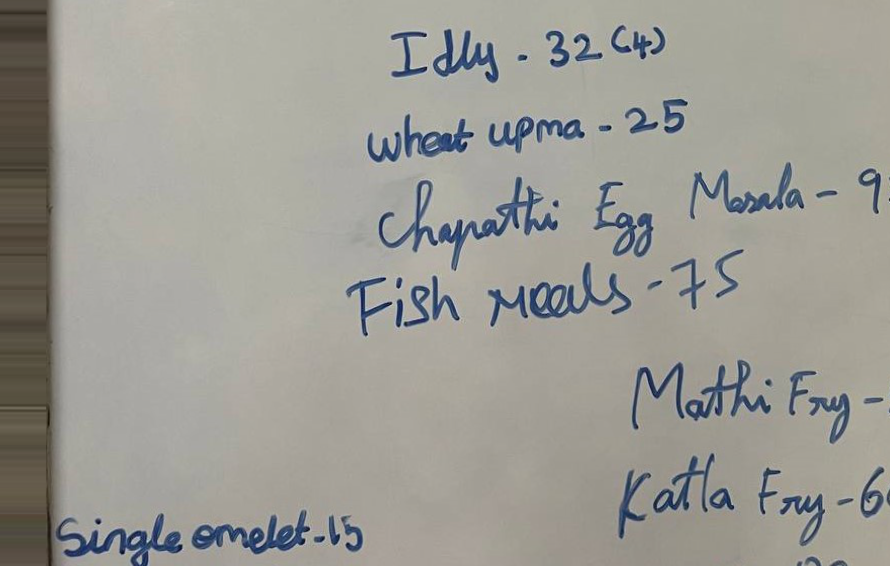 Idly - 32 (4)
wheat upma - 25
Chapathi Egg Masala - 9
Fish meals - 75
Mathi Fry -
Katla Fry - 6
Single omelet - 15